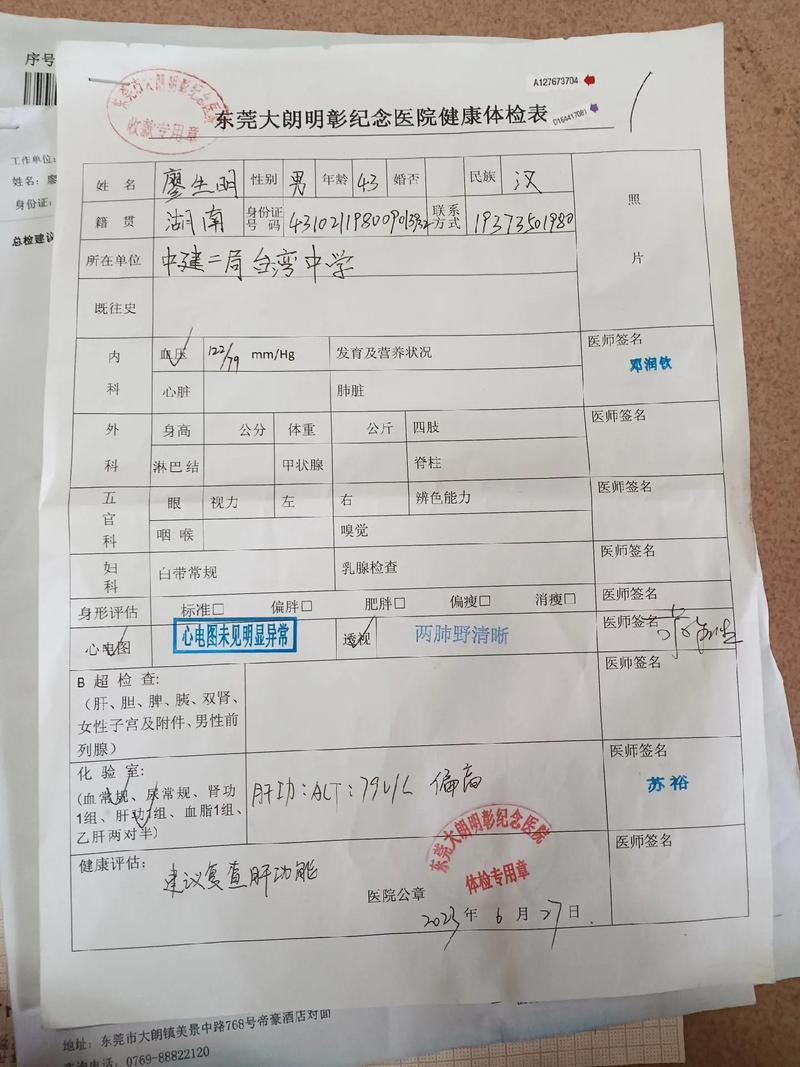 序号
工作单位:
姓名: 廖
身份证:
总检建议
A127673704
D164417081
东莞市大朗明彰纪念医院
收款专用章
东莞大朗明彰纪念医院健康体检表
姓 名 廖生明 性别 男 年龄 43 婚否 民族 汉
籍 贯 湖南 身份证号 码 联系方式 19373501980
照
片
所在单位 中建二局台湾中学
既往史
内科 血压 122/79 mm/Hg 发育及营养状况 医师签名
邓润钦
心脏 肺脏
外科 身高 公分 体重 公斤 四肢 医师签名
淋巴结 甲状腺 脊柱
五官科 眼 视力 左 右 辨色能力 医师签名
咽 喉 嗅觉
妇科 白带常规 乳腺检查 医师签名
身形评估 标准□ 偏胖□ 肥胖□ 偏瘦□ 消瘦□ 医师签名
心电图 心电图未见明显异常 透视 两肺野清晰 医师签名
B 超 检 查:
(肝、胆、脾、胰、双肾、
女性子宫及附件、男性前
列腺)
医师签名
化 验 室:
(血常规、尿常规、肾功
1组、肝功1组、血脂1组、
乙肝两对半)
肝功:ALT:79U/L 偏高
医师签名
苏裕
健康评估:
建议复查肝功能
医师签名
东莞大朗明彰纪念医院
体检专用章
医院公章
2023 年 6 月 27 日.
地址: 东莞市大朗镇美景中路768号帝豪酒店对面
咨询电话: 0769-88822120